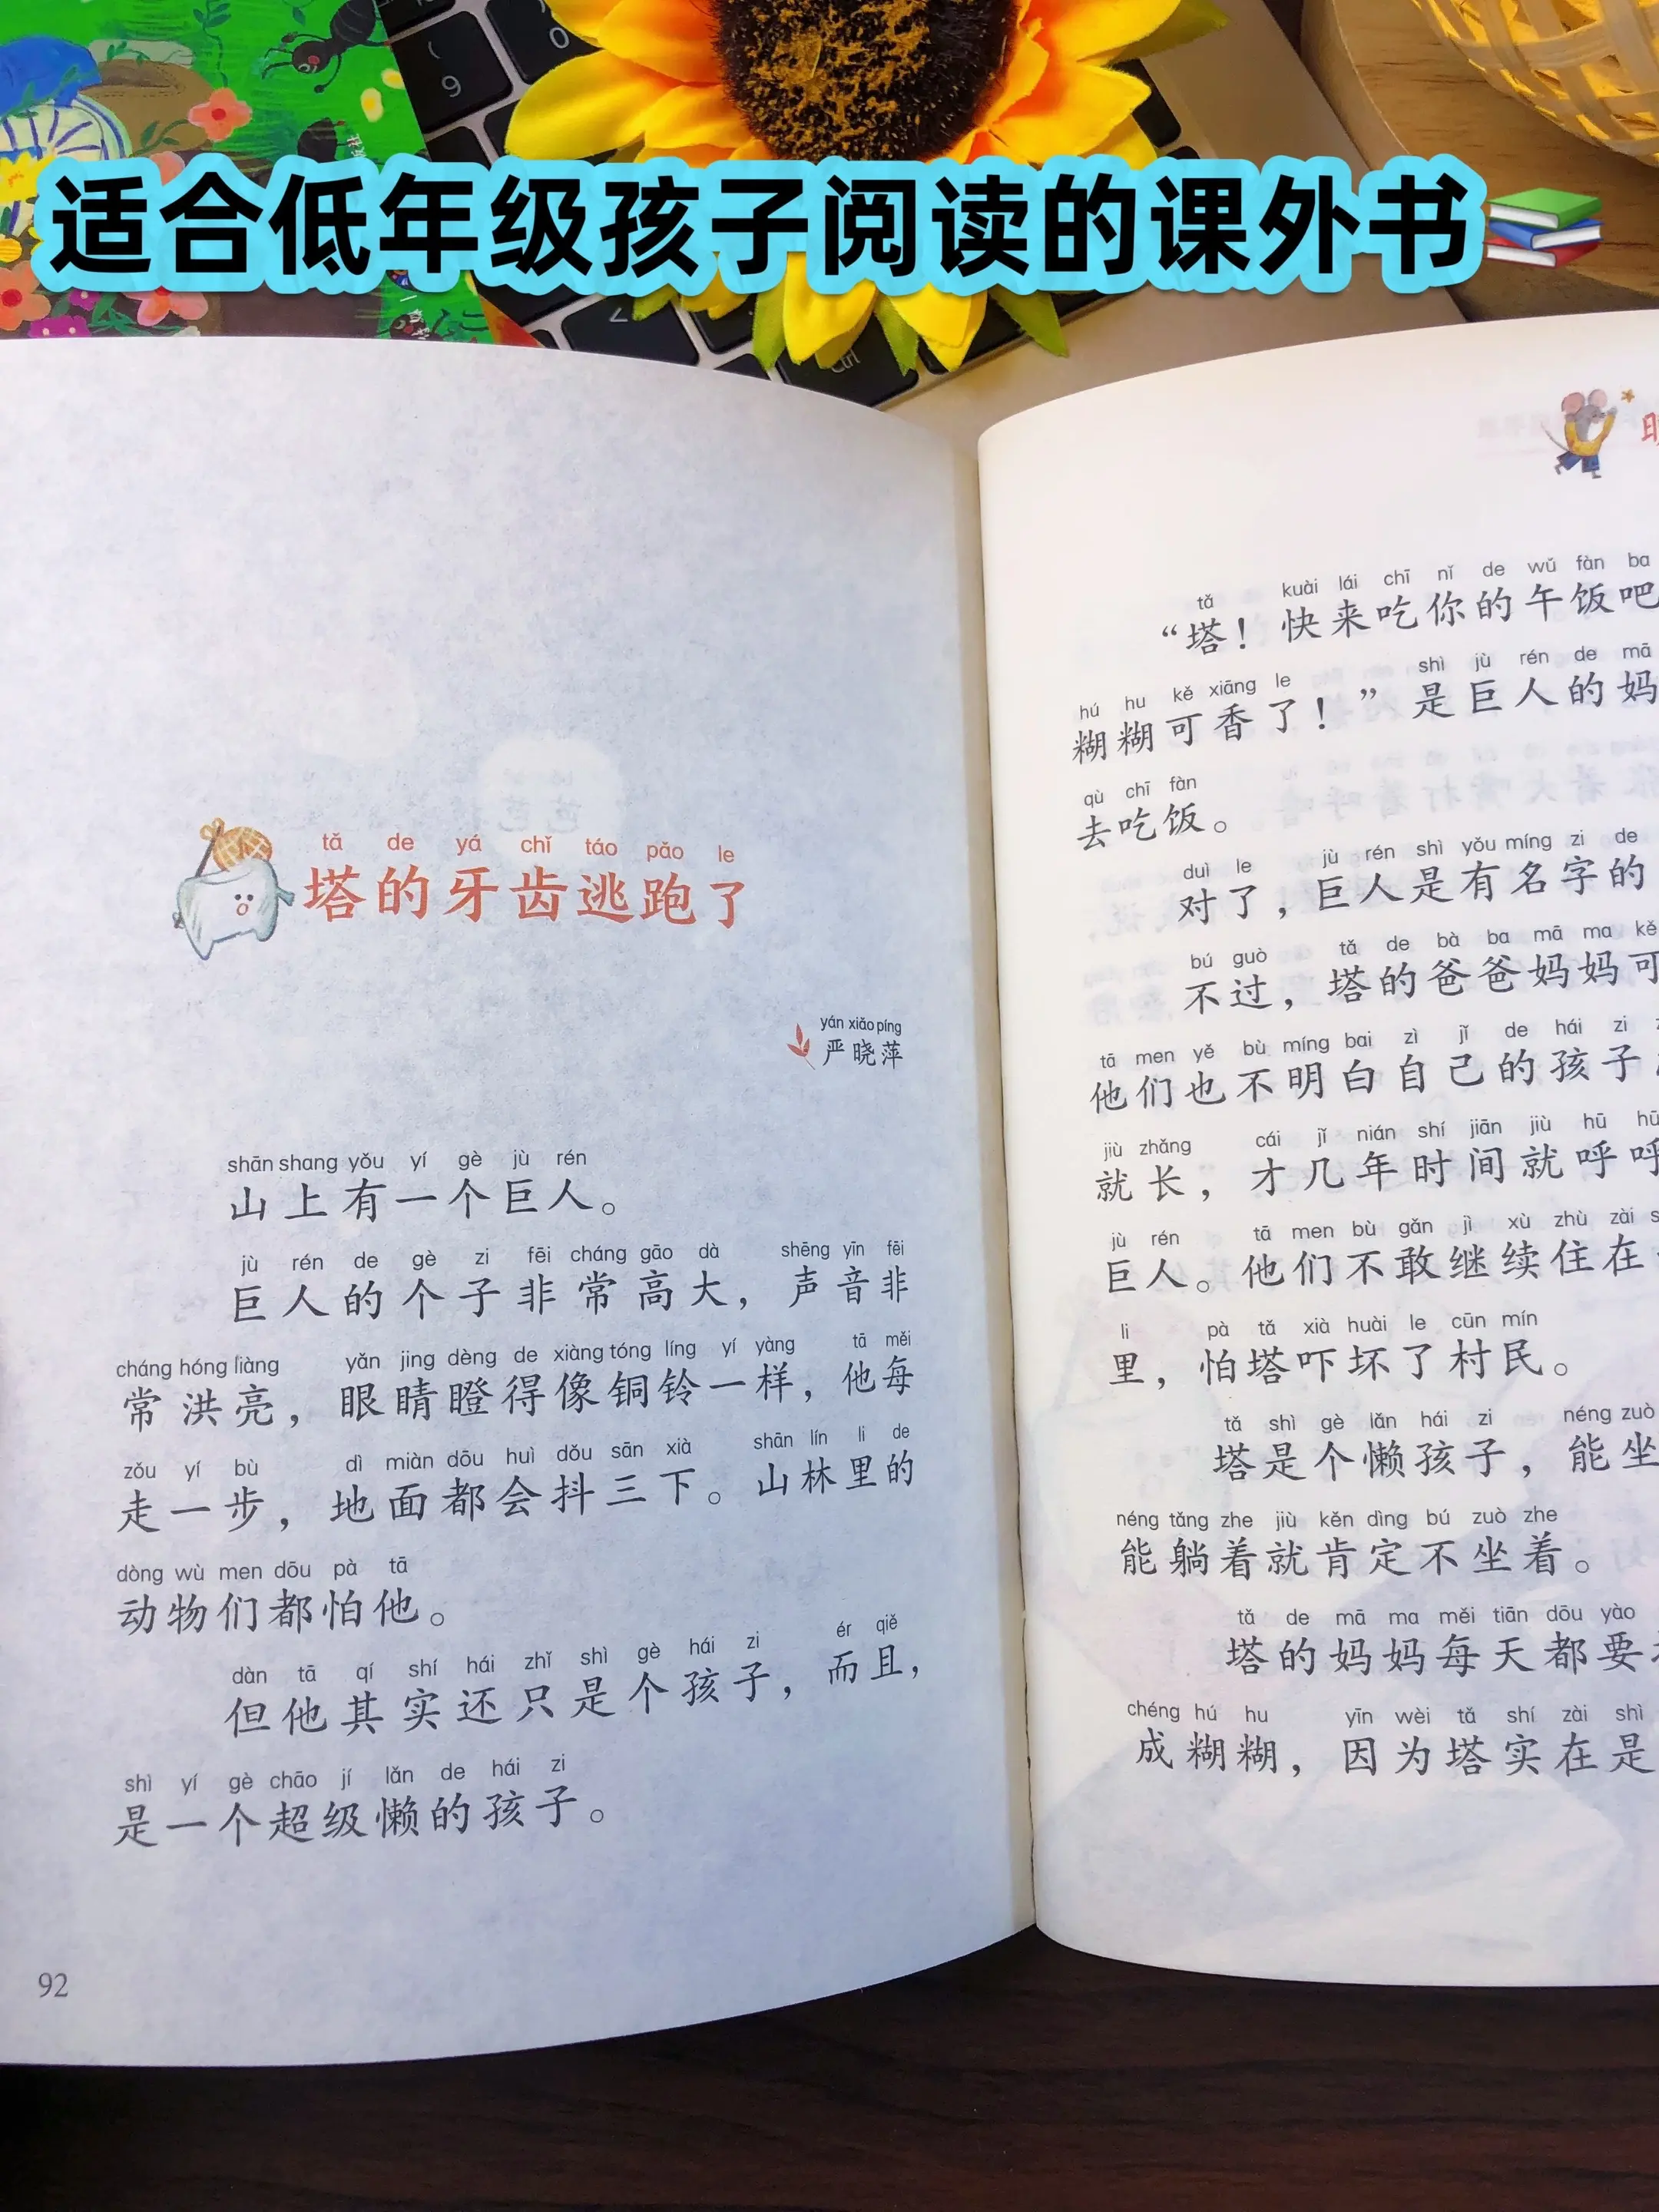 适合低年级孩子阅读的课外书
tǎ de yá chǐ táo pǎo le
塔的牙齿逃跑了
yán xiǎo píng
严晓萍
shān shang yǒu yí gè jù rén
山上有一个巨人。
jù rén de gè zi fēi cháng gāo dà shēng yīn fēi
巨人的个子非常高大，声音非
cháng hóng liàng yǎn jing dèng de xiàng tóng líng yí yàng tā měi
常洪亮，眼睛瞪得像铜铃一样，他每
zǒu yí bù dì miàn dōu huì dǒu sān xià shān lín li de
走一步，地面都会抖三下。山林里的
dòng wù men dōu pà tā
动物们都怕他。
dàn tā qí shí hái zhǐ shì gè hái zi ér qiě
但他其实还只是个孩子，而且，
shì yí gè chāo jí lǎn de hái zi
是一个超级懒的孩子。
92
tǎ kuài lái chī nǐ de wǔ fàn ba
“塔！快来吃你的午饭吧
hú hu kě xiāng le shì jù rén de mā
糊糊可香了！”是巨人的妈
qù chī fàn
去吃饭。
duì le jù rén shì yǒu míng zi de
对了，巨人是有名字的
bú guò tǎ de bà ba mā ma kě
不过，塔的爸爸妈妈可
tā men yě bù míng bai zì jǐ de hái zi
他们也不明白自己的孩子
jiù zhǎng cái jǐ nián shí jiān jiù hū hū
就长，才几年时间就呼呼
jù rén tā men bù gǎn jì xù zhù zài
巨人。他们不敢继续住在
li pà tǎ xià huài le cūn mín
里，怕塔吓坏了村民。
tǎ shì gè lǎn hái zi néng zuò
塔是个懒孩子，能坐
néng tǎng zhe jiù kěn dìng bú zuò zhe
能躺着就肯定不坐着。
tǎ de mā ma měi tiān dōu yào
塔的妈妈每天都要
chéng hú hu yīn wèi tǎ shí zài shì
成糊糊，因为塔实在是